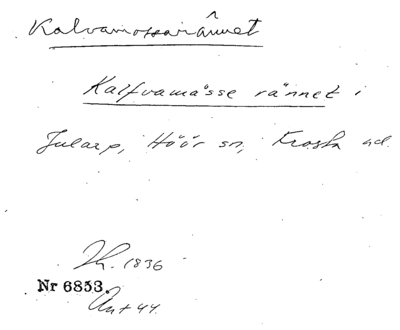 Kalvamossarännet
Kalfvamåsse rännet i
Jularp, Höör sn, Frosta hd.
1836
Nr 6853.
Ant 44.